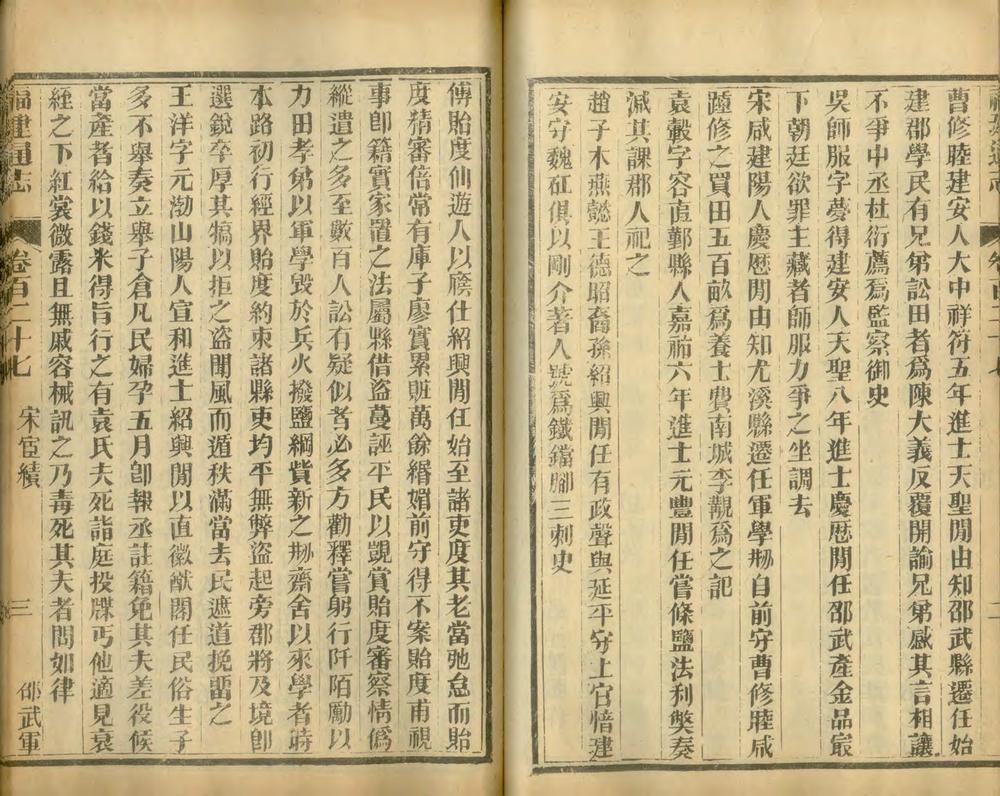 曹修睦建安人大中祥符五年進士天聖閒由知邵武縣遷任始
建郡學民有兄弟訟田者爲陳大義反覆開諭兄弟感其言相讓
不爭中丞杜衍薦爲監察御史
吳師服字夢得建安人天聖八年進士慶厯閒任邵武產金品最
下朝廷欲罪主藏者師服力爭之坐調去
宋咸建陽人慶厯閒由知尤溪縣遷任軍學刱自前守曹修睦咸
踵修之買田五百畝爲養士費南城李覯爲之記
袁轂字容直鄞縣人嘉祐六年進士元豐閒任嘗條鹽法利獘奏
減其課郡人祀之
趙子木燕懿王德昭裔孫紹興閒任有政聲與延平守上官愔建
安守魏矼俱以剛介著人號爲鐵鐺腳三刺史
傅貽度仙遊人以廕仕紹興閒任始至諸吏度其老當弛怠而貽
度精審倍常有庫子廖實累贓萬餘緡媚前守得不案貽度甫視
事卽籍實家置之法屬縣借盜蔓誣平民以覬賞貽度審察情僞
縱遣之多至數百人訟有疑似者必多方勸釋嘗躬行阡陌勵以
力田孝弟以軍學毀於兵火撥鹽綱貲新之刱齋舍以來學者時
本路初行經界貽度約束諸縣吏均平無弊盜起旁郡將及境卽
選銳卒厚其犒以拒之盜聞風而遁秩滿當去民遮道挽畱之
王洋字元渤山陽人宣和進士紹興閒以直徽猷閣任民俗生子
多不舉奏立舉子倉凡民婦孕五月卽報丞註籍免其夫差役候
當產者給以錢米得旨行之有袁氏夫死詣庭投牒丐他適見衰
絰之下紅裳微露且無戚容械訊之乃毒死其夫者問如律
福建通志 卷百二十七 宋宦績 三 邵武軍